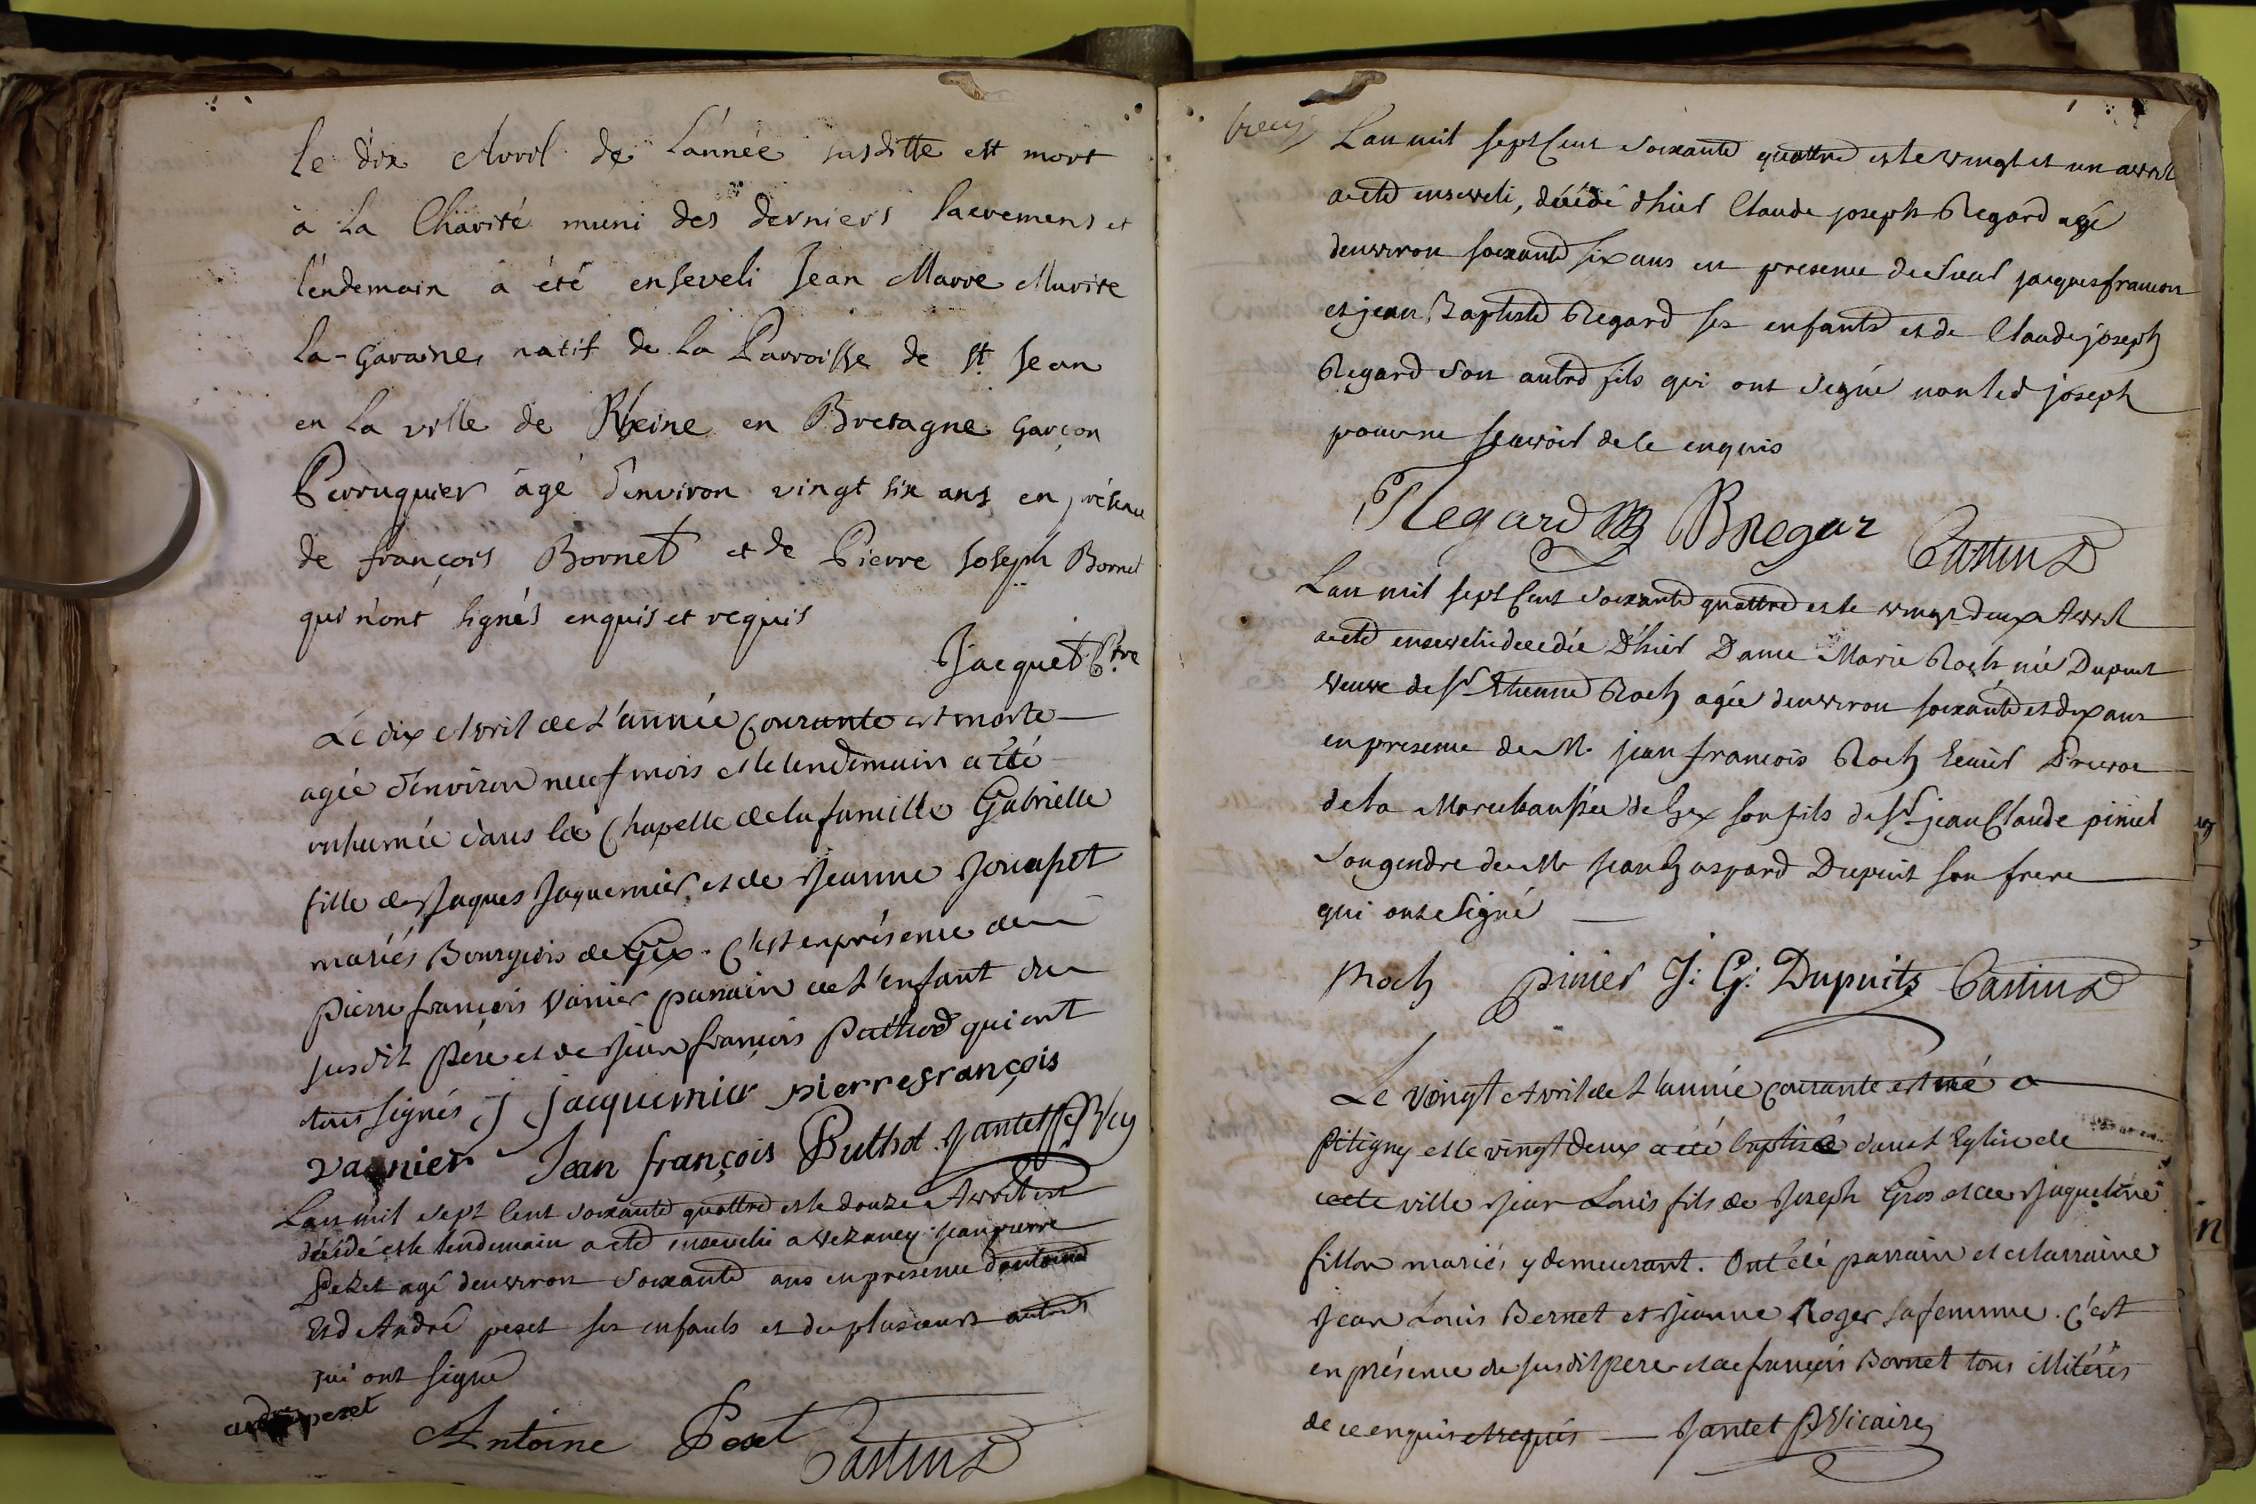 Le dix Avril de L'année susditte est mort
à La Charité muni des derniers Sacremens et
l'endemain a été enseveli Jean Marre Murite
La-Garaine, natif de La Parroisse de St Jean
en La ville de Rheine en Bretagne Garçon
Perruquier âgé d'environ vingt six ans en présence
de françois Bornet et de Pierre Joseph Bornet
qui n'ont signés enquis et requis
Jacquet Ptre
Le dix Avril de L'année courante est morte
agée d'environ neuf mois et le lendemain a été
inhumée dans la Chapelle de la famille Gabrielle
fille de Jaques Jaquemier et de Jeanne
mariés Bourgeois de Gex. C'est en présence de
pierre françois Vanier parrain de L'enfant du
susdit pere et de Jean françois Puthod qui ont
tous signés J Jacquemier pierre françois
vagnier Jean françois Puthod. Jantet Vic
Lan mil sept Cent soixante quattre et le douze Avvril est
décédé et le lendemain a eté enseveli a Vezancy jean pierre
Pezet agé denvviron soixante ans en presence dantoine
Et d André pezet ses enfants et de plusieurs autres
qui ont signé
andré pezet
Antoine Pezet Castin
Lan mil sept Cent soixante quattre et le vvingt et un avvril
a eté enseveli, décédé d'hier Claude joseph Regard agé
denvviron soixante six ans en presence de jacques francois
et jean Baptiste Regard ses enfants et de Claude joseph
Regard son autre fils qui ont signé non led joseph
pour ne scavoir de ce enquis
Regard BRegar Castin
Lan mil sept Cent soixante quattre et le vvingt deux Avvril
a eté ensevelie decedée D'hier Dame Marie Roch née Dupuit
veuve de Sr Etienne Roch agée denvviron soixante et dix ans
en presence de M. jean francois Roch Ecuier Prevot
de la Marechaussée de Gex son fils de Sr jean Claude pinier
son gendre de Mr jean Gaspard Dupuit son frere
qui ont signé
Roch pinier J: G: Dupuits Castin
Le vingt Avril de L'année courante est né a
Pitigny et le vingt deux a été baptisé dans L'Eglise de
cette ville Jean Louis fils de Joseph Gros et de Jaqueline
fillon mariés y demeurant. Ont été parrain et Marraine
Jean Louis Bernet et Jeanne Roger sa femme. C'est
en présence du susdit pere et de françois Bornet tous illitérés
de ce enquis et requis Jantet Vicaire